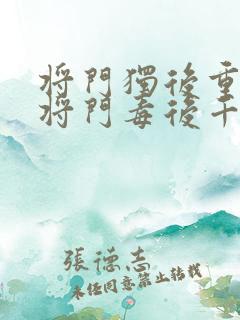 將門獨後重
將門毒後千
張德志
未经同意禁止转载